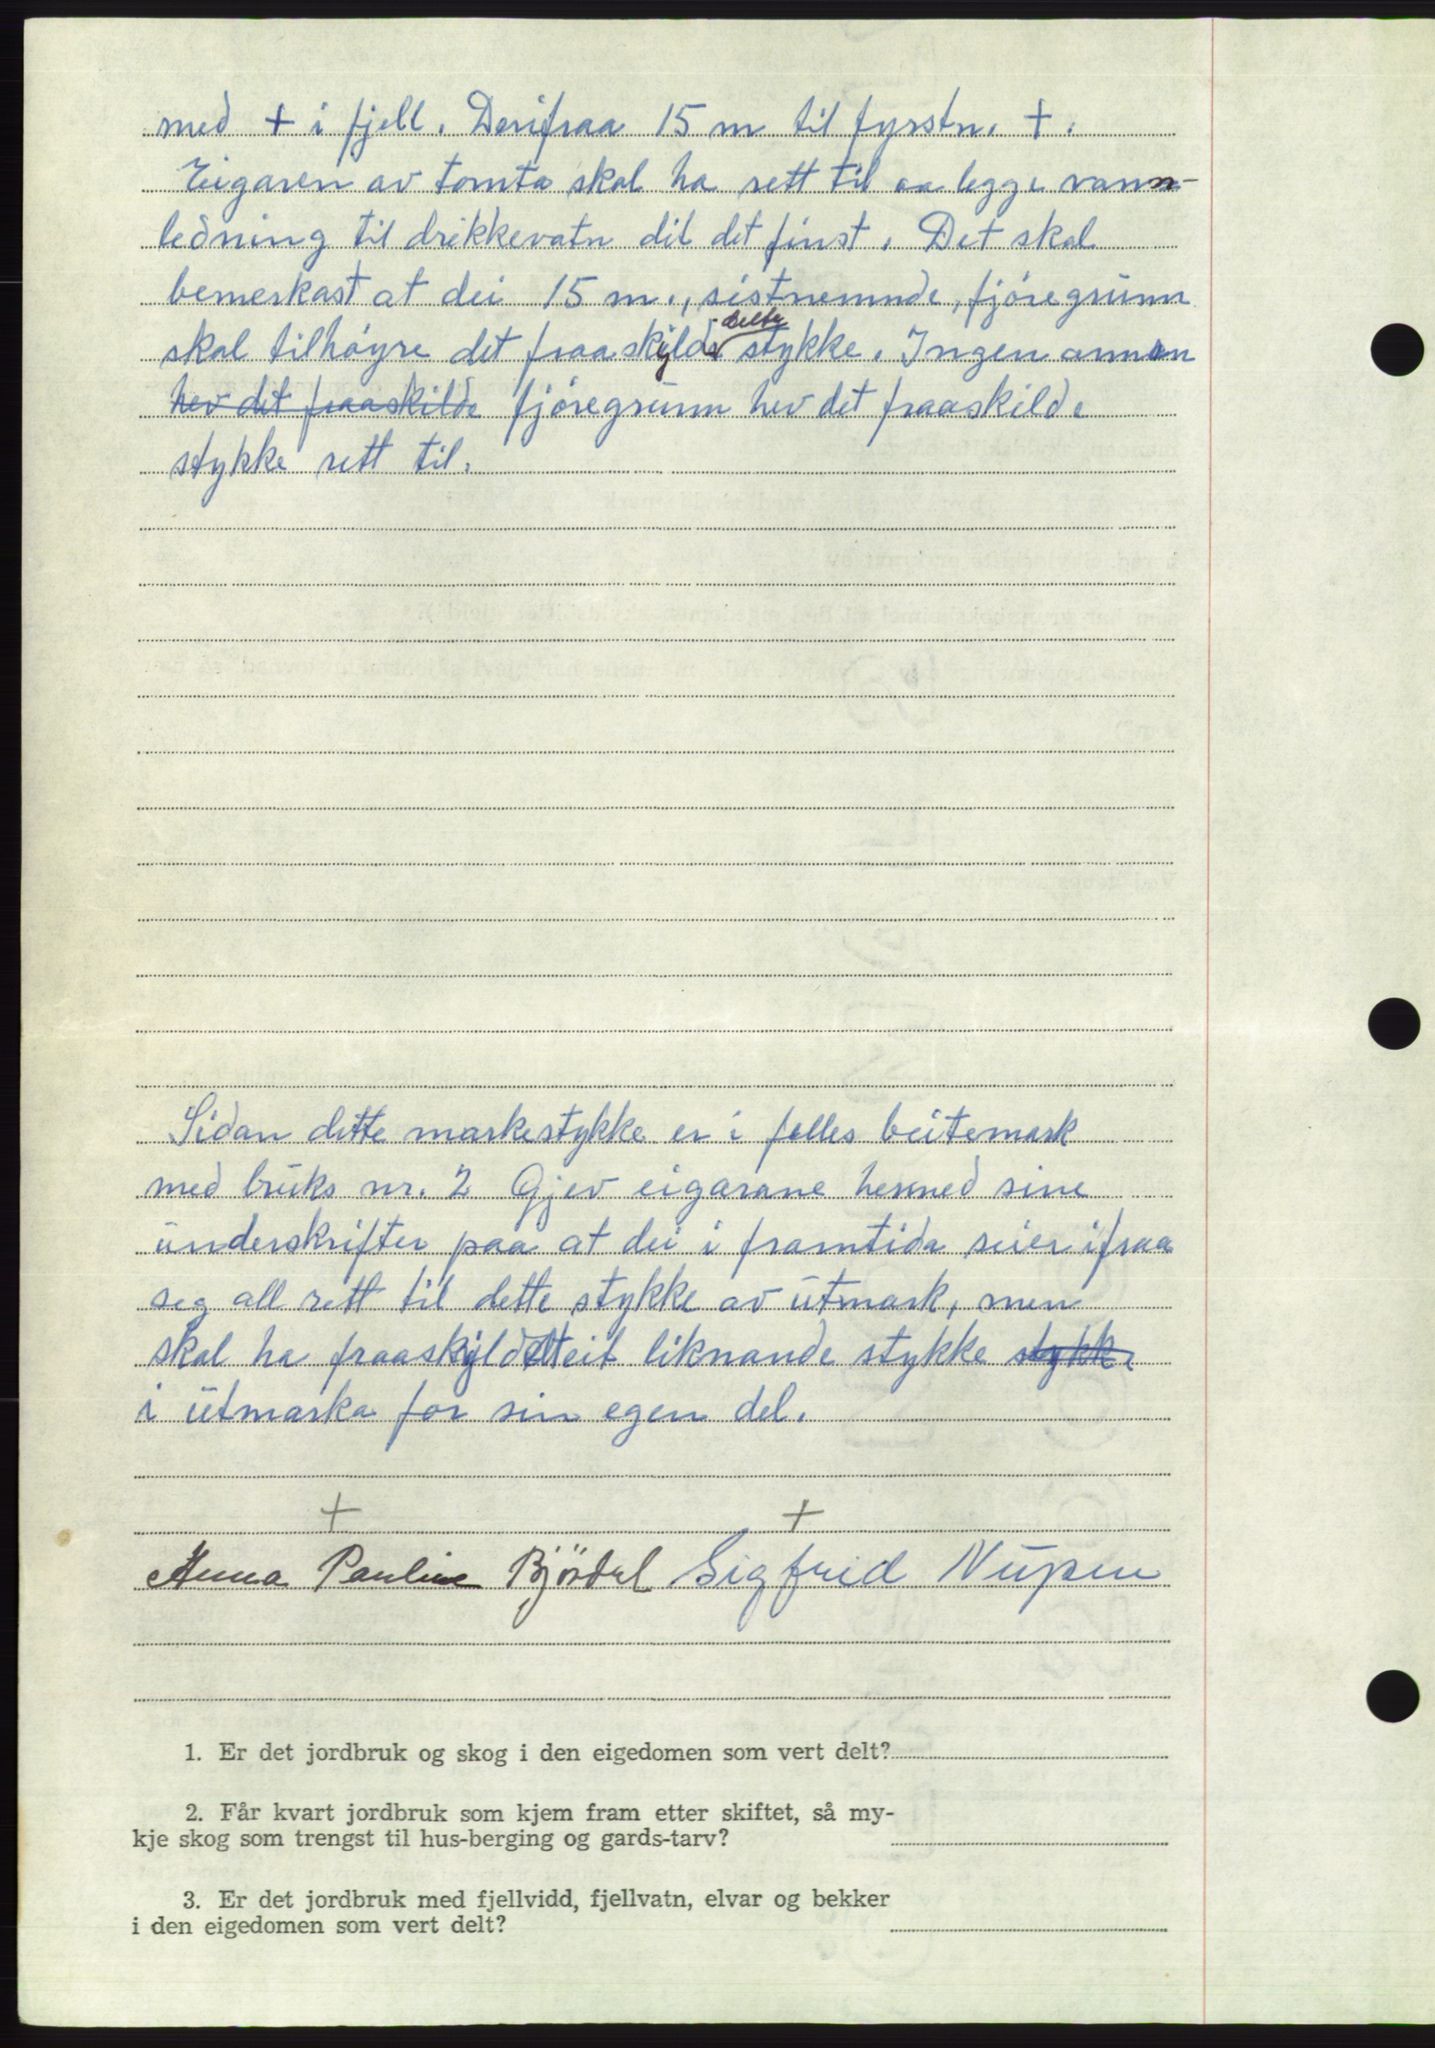 med + i fjell. Derifraa 15 m til fyrstn. +.
Eigaren av tomta skal ha rett til aa legge vann-
ledning til drikkevatn dit det finst. Det skal
bemerkast at dei 15 m., sistnemnde, fjøregrunn
skal tilhøyre det fraaskylde delte stykke. Ingen annan
hev det fraaskilde fjøregrunn hev det fraaskilde
stykke rett til.
Sidan dette markestykke er i felles beitemark
med bruks nr. 2 Gjev eigarane hermed sine
underskrifter paa at dei i framtida seier ifraa
seg all rett til dette stykke av utmark, men
skal ha fraaskyldt eit liknande stykke stykke
i utmarka for sin egen del.
+ +
Anna Pauline Bjørdal Sigfrid Nupen
1. Er det jordbruk og skog i den eigedomen som vert delt?
2. Får kvart jordbruk som kjem fram etter skiftet, så my-
kje skog som trengst til hus-berging og gards-tarv?
3. Er det jordbruk med fjellvidd, fjellvatn, elvar og bekker
i den eigedomen som vert delt?